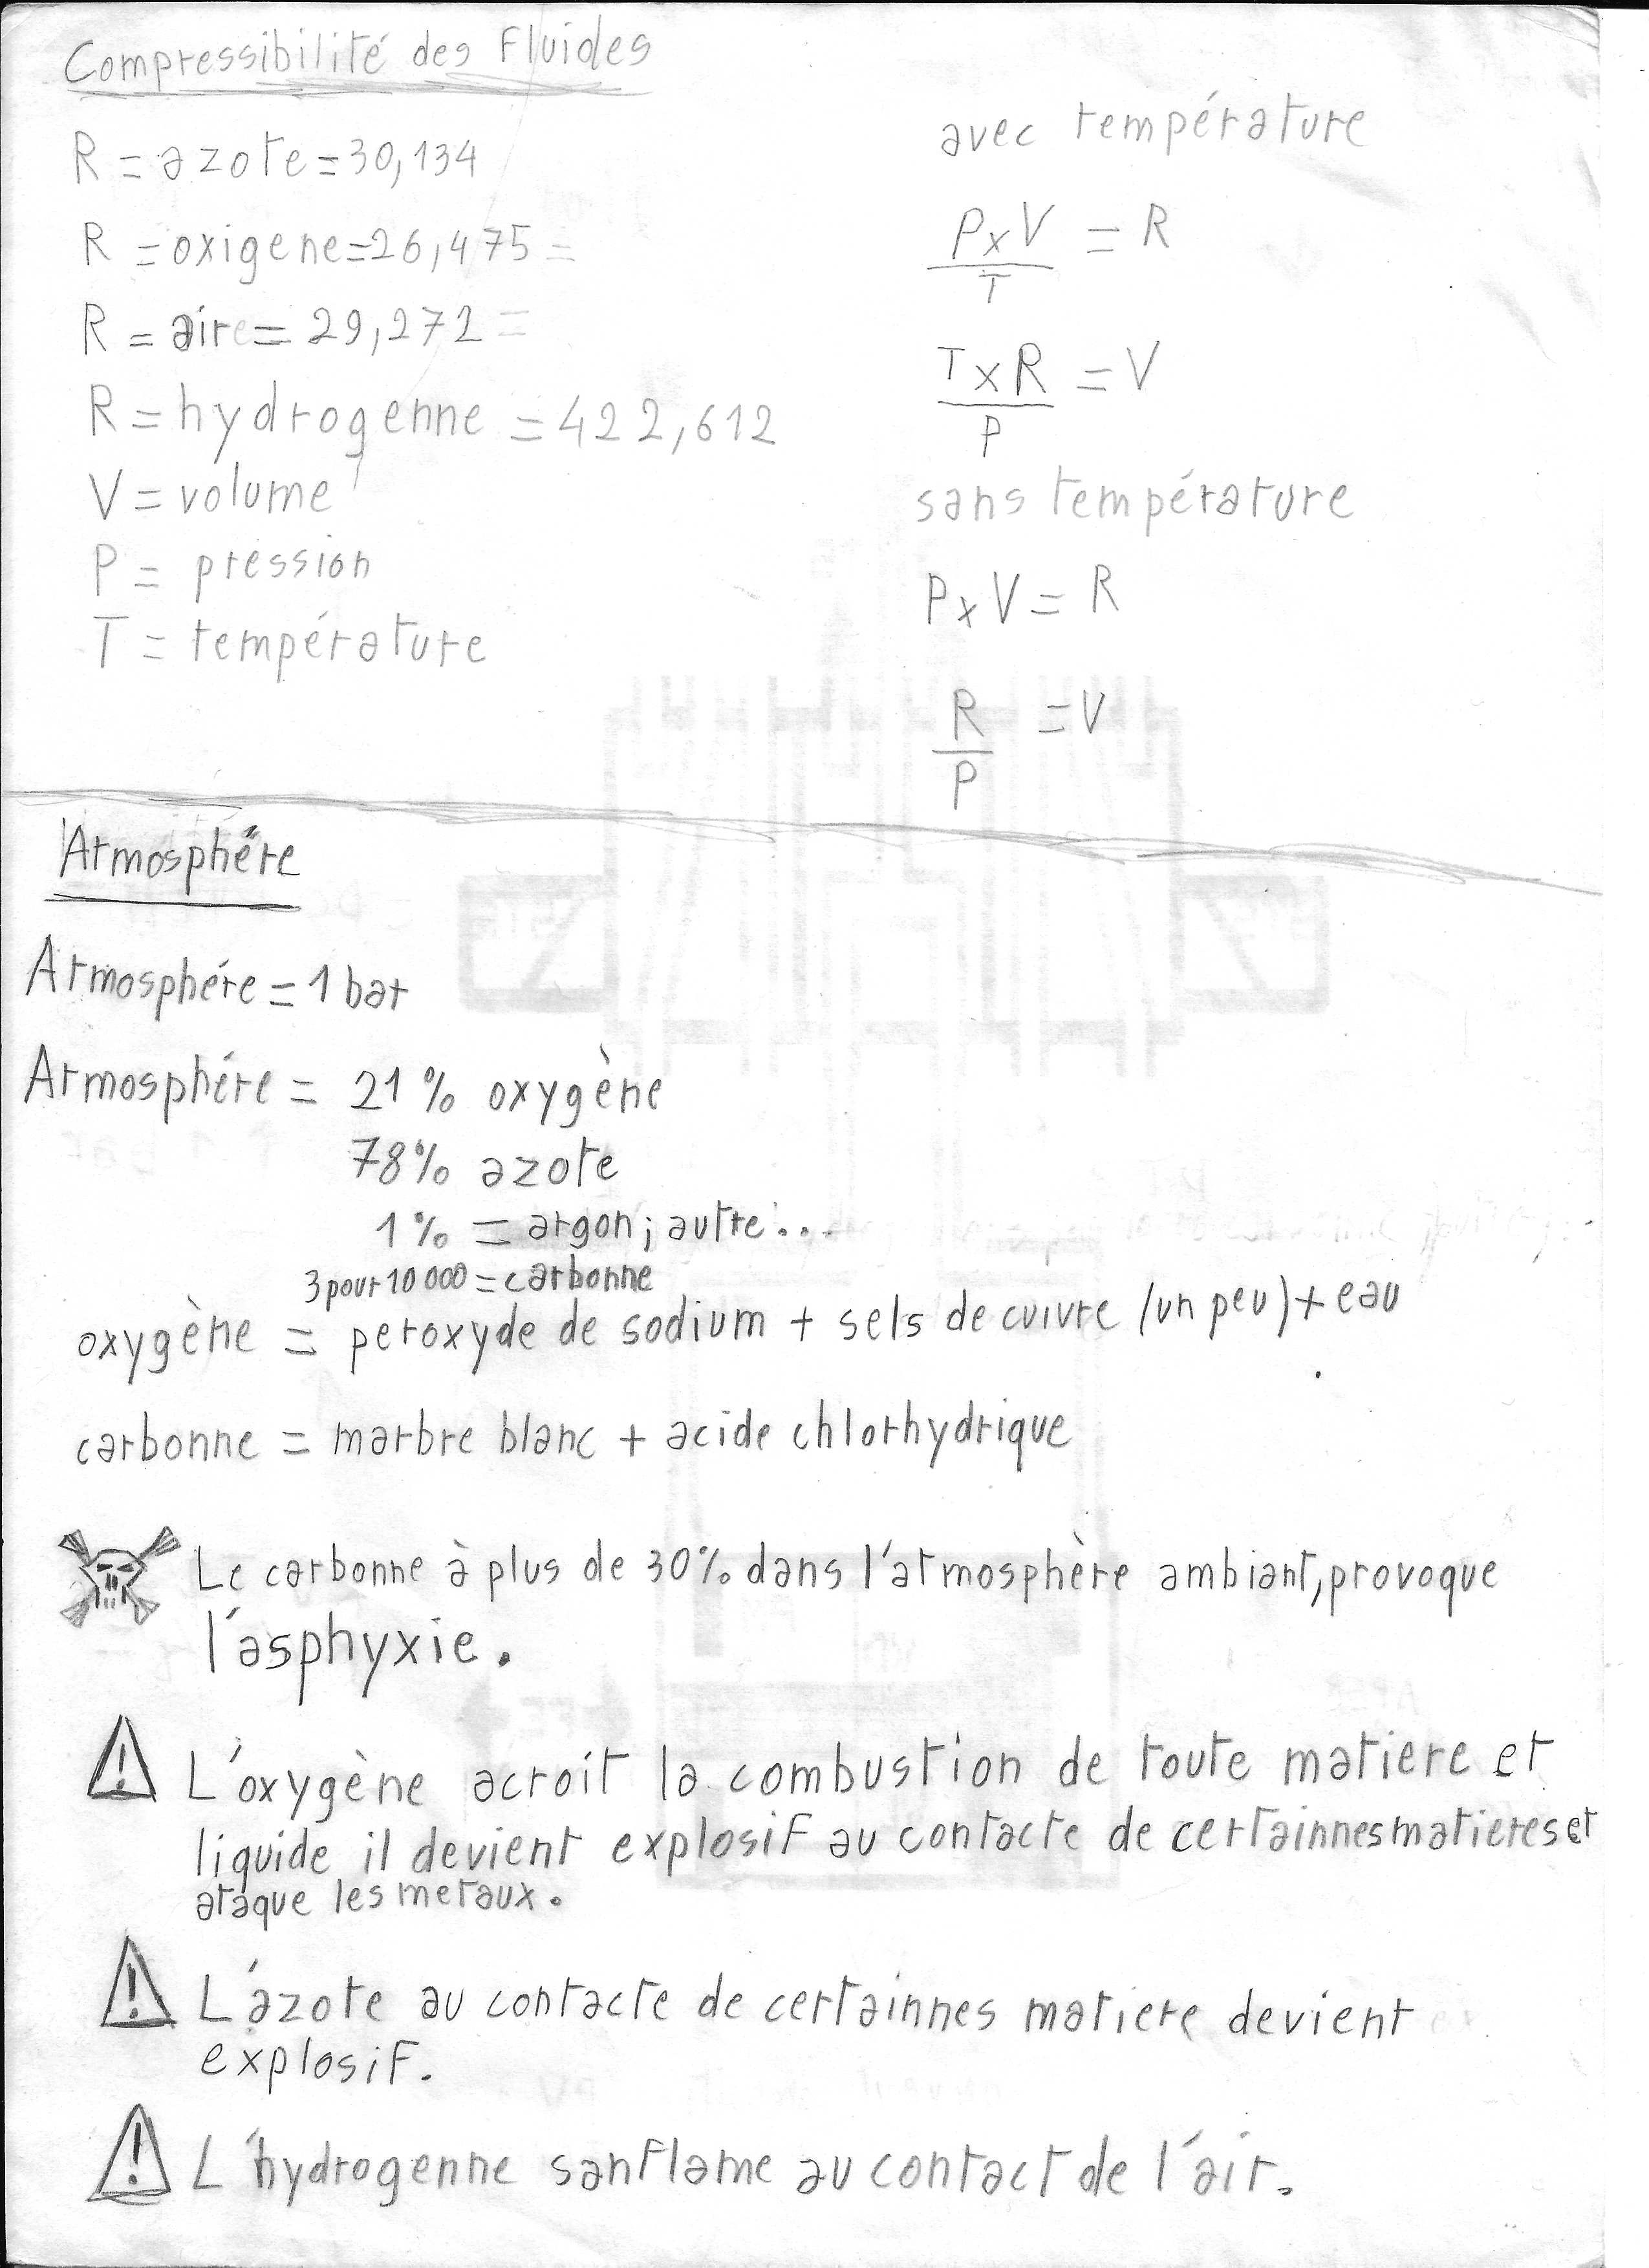 Compressibilité des Fluides
R = azote = 30,134
R = oxigene = 26,475 =
R = aire = 29,272 =
R = hydrogenne = 422,612
V = volume
P = pression
T = température
avec température
P x V = R
T
T x R = V
P
sans température
P x V = R
R = V
P
Atmosphére
Atmosphére = 1 bar
Atmosphére = 21 % oxygène
78% azote
1 % = argon ; autre...
3 pour 10 000 = carbonne
oxygène = peroxyde de sodium + sels de cuivre (un peu) + eau
carbonne = marbre blanc + acide chlorhydrique
Le carbonne à plus de 30% dans l'atmosphère ambiant, provoque
l'asphyxie.
! L'oxygène acroit la combustion de toute matiere et
liquide il devient explosif au contacte de certainnes matieres et
ataque les metaux.
! L'azote au contacte de certainnes matiere devient
explosif.
! L'hydrogenne sanflame au contact de l'air.